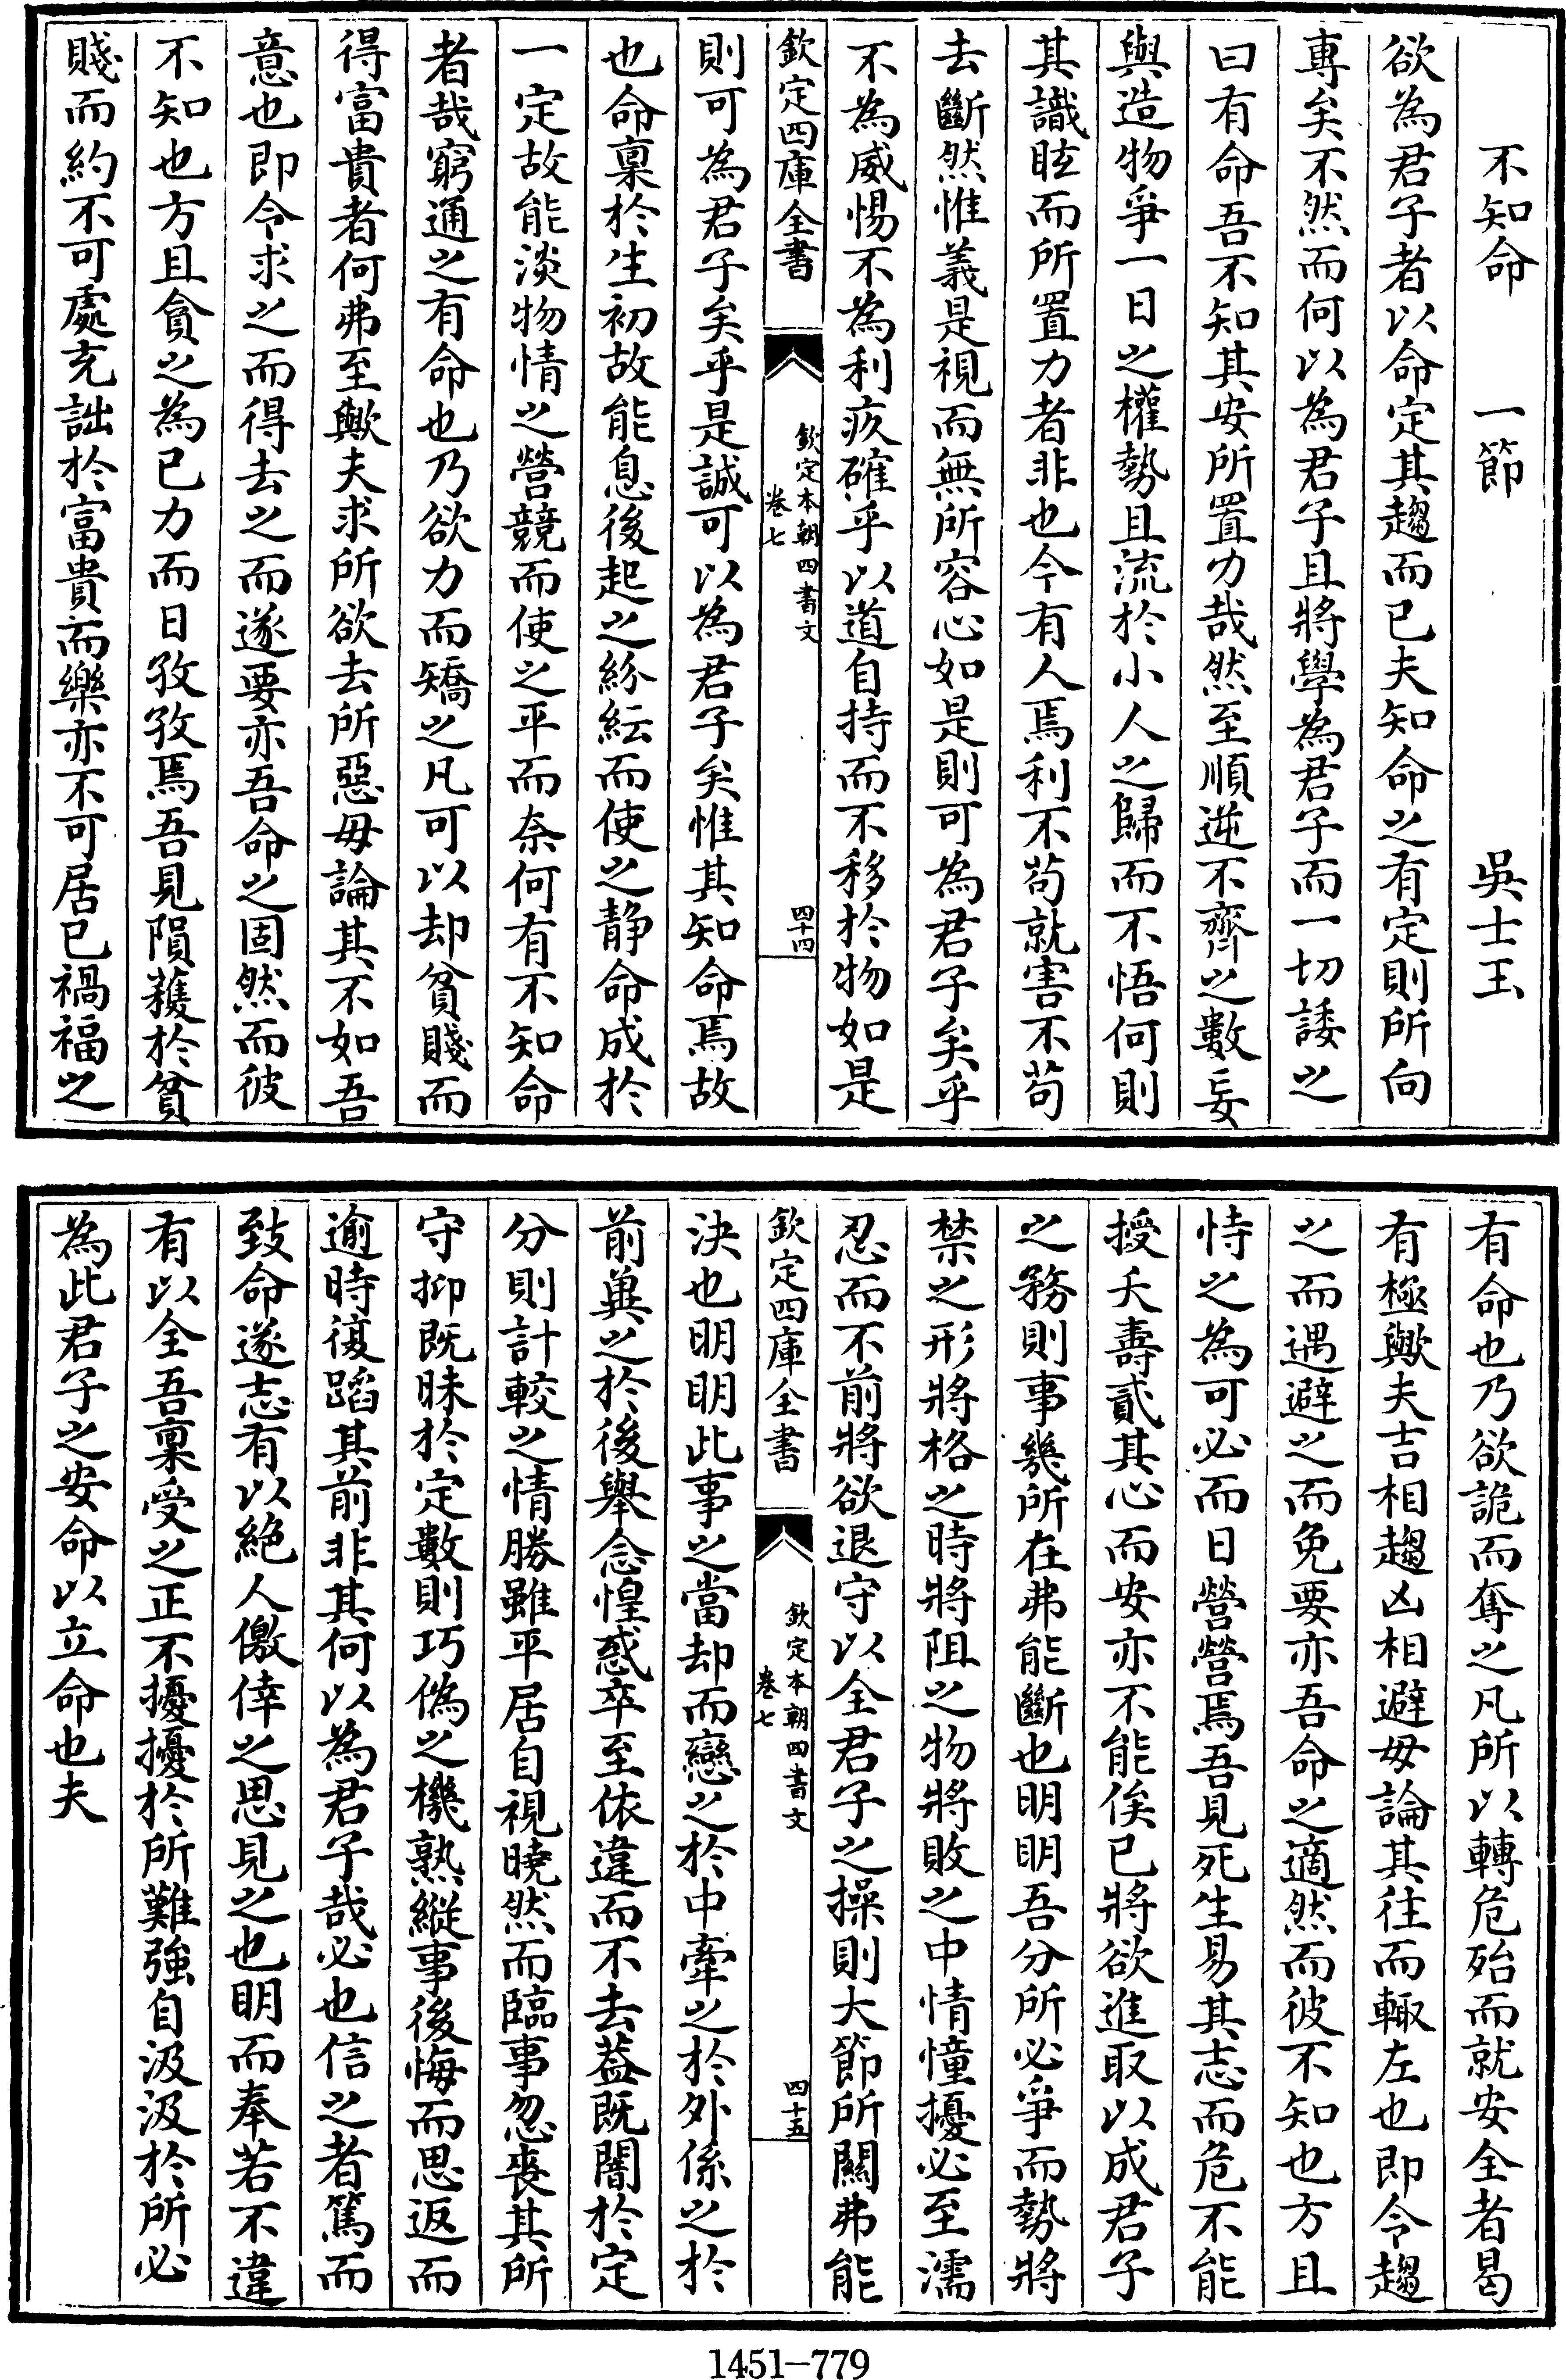 不知命　一節　吳士玉
欲為君子者以命定其趨而已夫知命之有定則所向
專矣不然而何以為君子且將學為君子而一切諉之
曰有命吾不知其安所置力哉然至順逆不齊之數妄
與造物爭一日之權勢且流於小人之歸而不悟何則
其識眩而所置力者非也今有人焉利不苟就害不苟
去斷然惟義是視而無所容心如是則可為君子矣乎
不為威惕不為利疚確乎以道自持而不移於物如是
欽定四庫全書
欽定本朝四書文
卷七
四十四
則可為君子矣乎是誠可以為君子矣惟其知命焉故
也命稟於生初故能息後起之紛紜而使之靜命成於
一定故能淡物情之營競而使之平而奈何有不知命
者哉窮通之有命也乃欲力而矯之凡可以却貧賤而
得富貴者何弗至歟夫求所欲去所惡毋論其不如吾
意也即令求之而得去之而遂要亦吾命之固然而彼
不知也方且貪之為已力而日孜孜焉吾見隕穫於貧
賤而約不可處充詘於富貴而樂亦不可居已禍福之
有命也乃欲詭而奪之凡所以轉危殆而就安全者曷
有極歟夫吉相趨凶相避毋論其往而輙左也即令趨
之而遇避之而免要亦吾命之適然而彼不知也方且
恃之為可必而日營營焉吾見死生易其志而危不能
授夭壽貳其心而安亦不能俟已將欲進取以成君子
之務則事幾所在弗能斷也明明吾分所必爭而勢將
禁之形將格之時將阻之物將敗之中情憧擾必至濡
忍而不前將欲退守以全君子之操則大節所關弗能
欽定四庫全書
欽定本朝四書文
卷七
四十五
決也明明此事之當却而戀之於中牽之於外係之於
前冀之於後舉念惶惑卒至依違而不去葢既闇於定
分則計較之情勝雖平居自視曉然而臨事忽喪其所
守抑既昧於定數則巧偽之機熟縱事後悔而思返而
逾時復蹈其前非其何以為君子哉必也信之者篤而
致命遂志有以絶人儌倖之思見之也明而奉若不違
有以全吾稟受之正不擾擾於所難強自汲汲於所必
為此君子之安命以立命也夫
1451-779